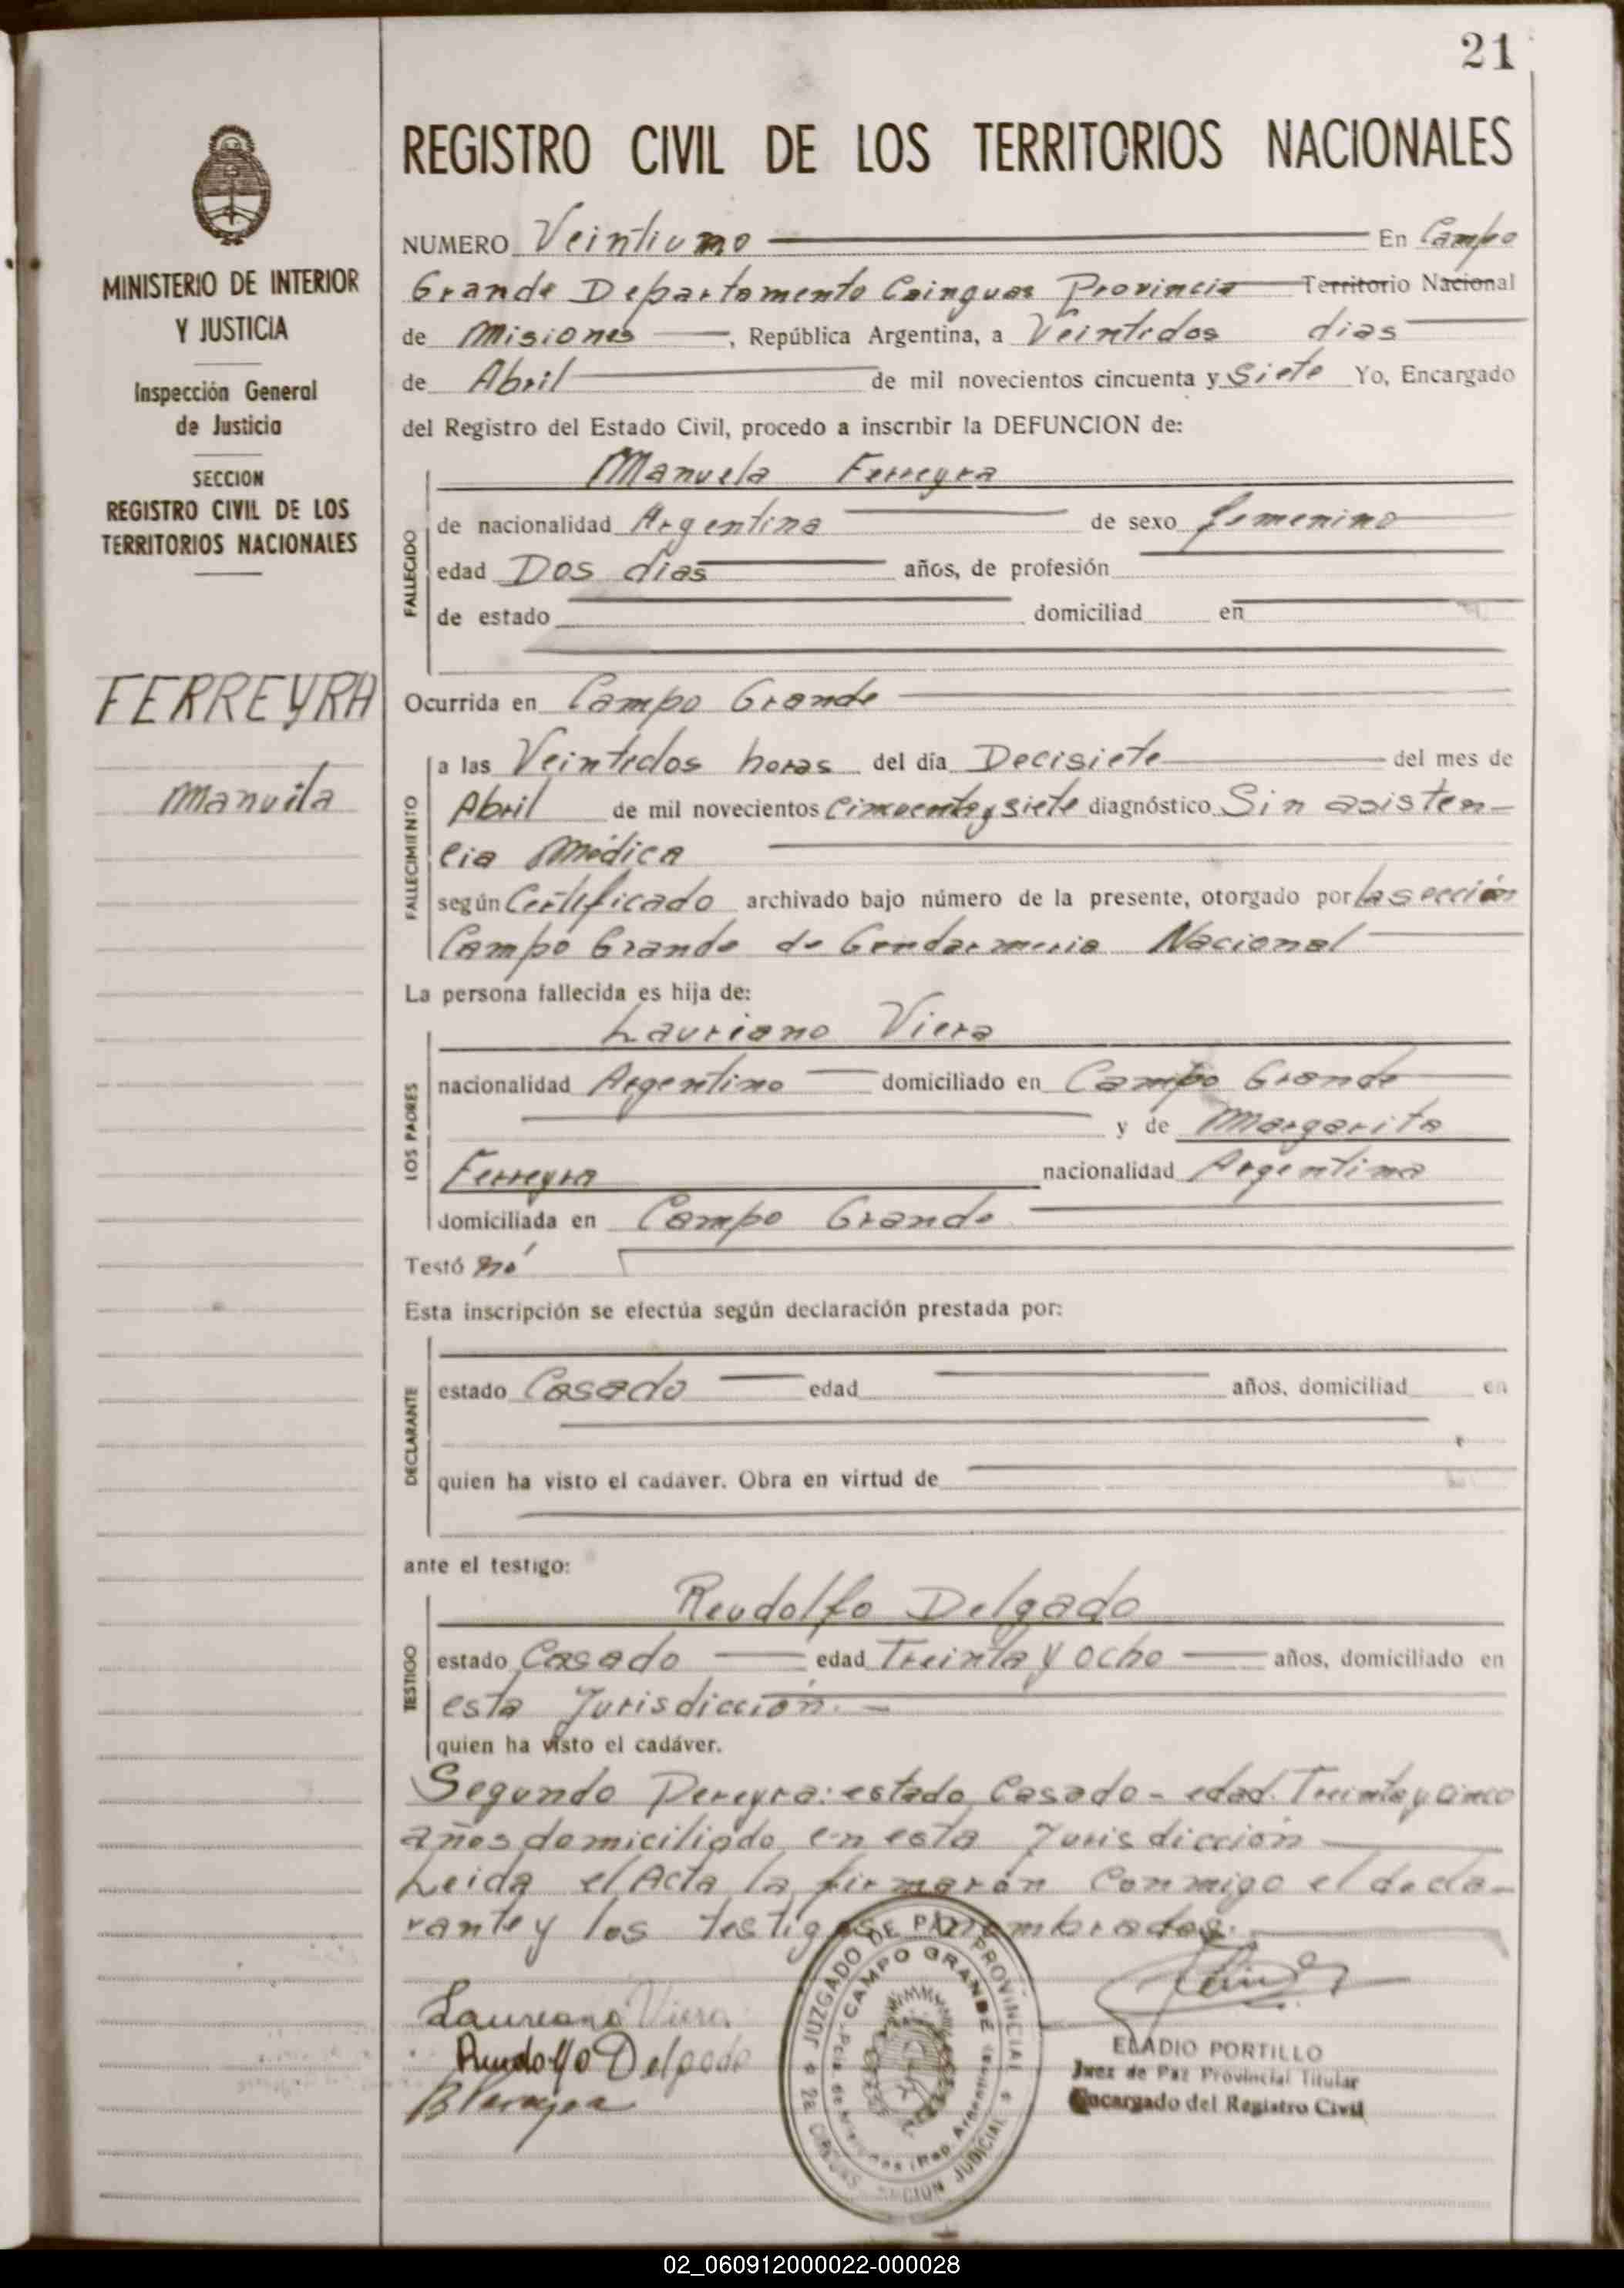 21
REGISTRO CIVIL DE LOS TERRITORIOS NACIONALES
MINISTERIO DE INTERIOR
Y JUSTICIA
Inspección General
de Justicia
SECCION
REGISTRO CIVIL DE LOS
TERRITORIOS NACIONALES
FERREYRA
Manuela
NUMERO Veintiuno En Campo
Grande Departamento Cainguas Provincia Territorio Nacional
de Misiones, República Argentina, a Veintidos dias
de Abril de mil novecientos cincuenta y Siete Yo, Encargado
del Registro del Estado Civil, procedo a inscribir la DEFUNCION de:
Manuela Ferreyra
FALLECIDO
de nacionalidad Argentina de sexo femenino
edad Dos dias años, de profesión
de estado domiciliad en
Ocurrida en Campo Grande
FALLECIMIENTO
a las Veintidos horas del día Decisiete del mes de
Abril de mil novecientos Cincuenta y siete diagnóstico Sin asisten-
cia Médica
según Certificado archivado bajo número de la presente, otorgado por la sección
Campo Grande de Gendarmeria Nacional
La persona fallecida es hija de:
Lauriano Viera
LOS PADRES
nacionalidad Argentino domiciliado en Campo Grande
y de Margarita
Ferreyra nacionalidad Argentina
domiciliada en Campo Grande
Testó nó
Esta inscripción se efectúa según declaración prestada por:
DECLARANTE
estado Casado edad años, domiciliad en
quien ha visto el cadáver. Obra en virtud de
ante el testigo:
Reudolfo Delgado
TESTIGO
estado Casado edad Treinta y Ocho años, domiciliado en
esta Jurisdicción.
quien ha visto el cadáver.
Segundo Pereyra: estado Casado - edad Treinta y cinco
años domiciliado en esta Jurisdiccion
Leida el Acta la firmarón conmigo el decla-
rante y los testigos nombrados.
Laureano Viera
Reudolfo Delgado
JUZGADO DE PAZ PROVINCIAL
CAMPO GRANDE
Pcia. de Misiones (Rep. Argentina)
2a CIRCUNSCRIPCION JUDICIAL
ELADIO PORTILLO
Juez de Paz Provincial Titular
Encargado del Registro Civil
02_060912000022-000028